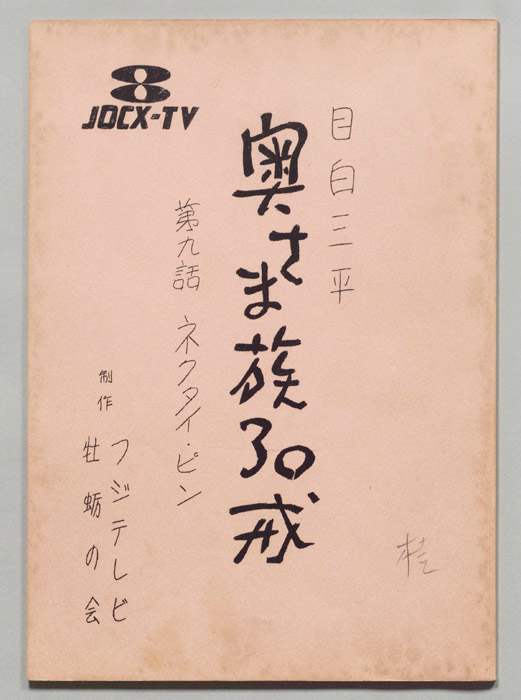 JOCX-TV
目白三平
奥さま族30戒
第九話 ネクタイ・ピン
制作
フジテレビ
牡蛎の会